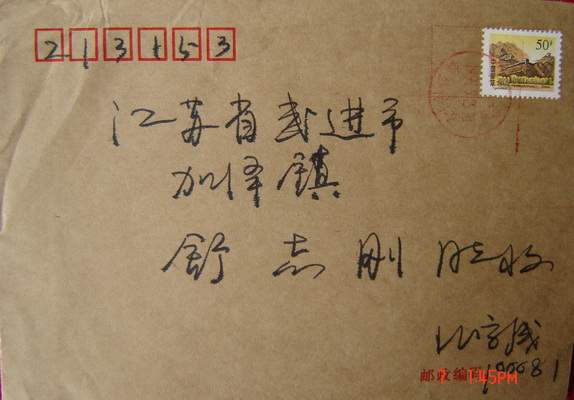 213153
50
江苏省武进市
加泽镇
舒志刚 收
邮政编码
100081
1:45PM